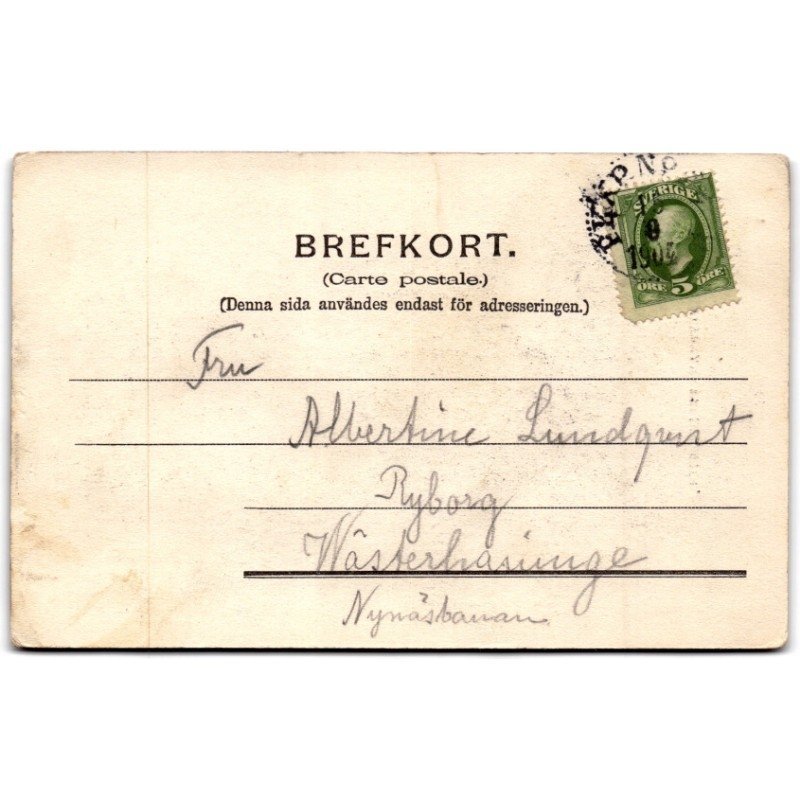 BREFKORT.
(Carte postale.)
(Denna sida användes endast för adresseringen.)
SVERIGE
9
1904
ÖRE 5 ÖRE
Fru
Albertine Lundqvist
Ryborg
Wästerhaninge
Nynäsbanan